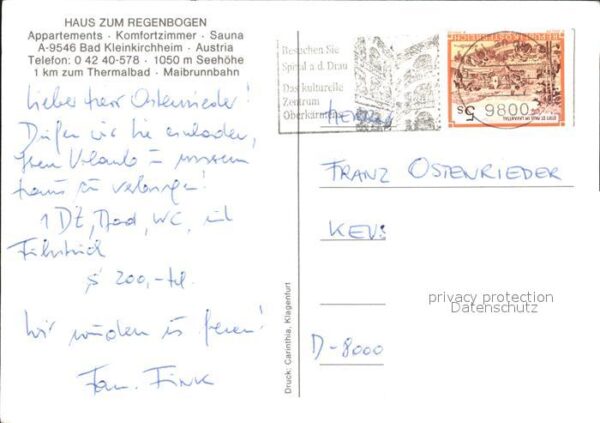 HAUS ZUM REGENBOGEN
Appartements · Komfortzimmer · Sauna
A-9546 Bad Kleinkirchheim · Austria
Telefon: 0 42 40-578 · 1050 m Seehöhe
1 km zum Thermalbad · Maibrunnbahn
Lieber Herr Ostenrieder!
Dürfen wir Sie einladen,
Ihren Urlaub in unserem
Haus zu verbringen!
1 DZ, Bad, WC, mit
Frühstück
S 200,-
Wir würden uns freuen!
Fam. Fink
Druck: Carinthia, Klagenfurt
Besuchen Sie
Spittal a. d. Drau
Das kulturelle
Zentrum
Oberkärntens
9800
5 S
HERRN
FRANZ OSTENRIEDER
D-8000
privacy protection
Datenschutz